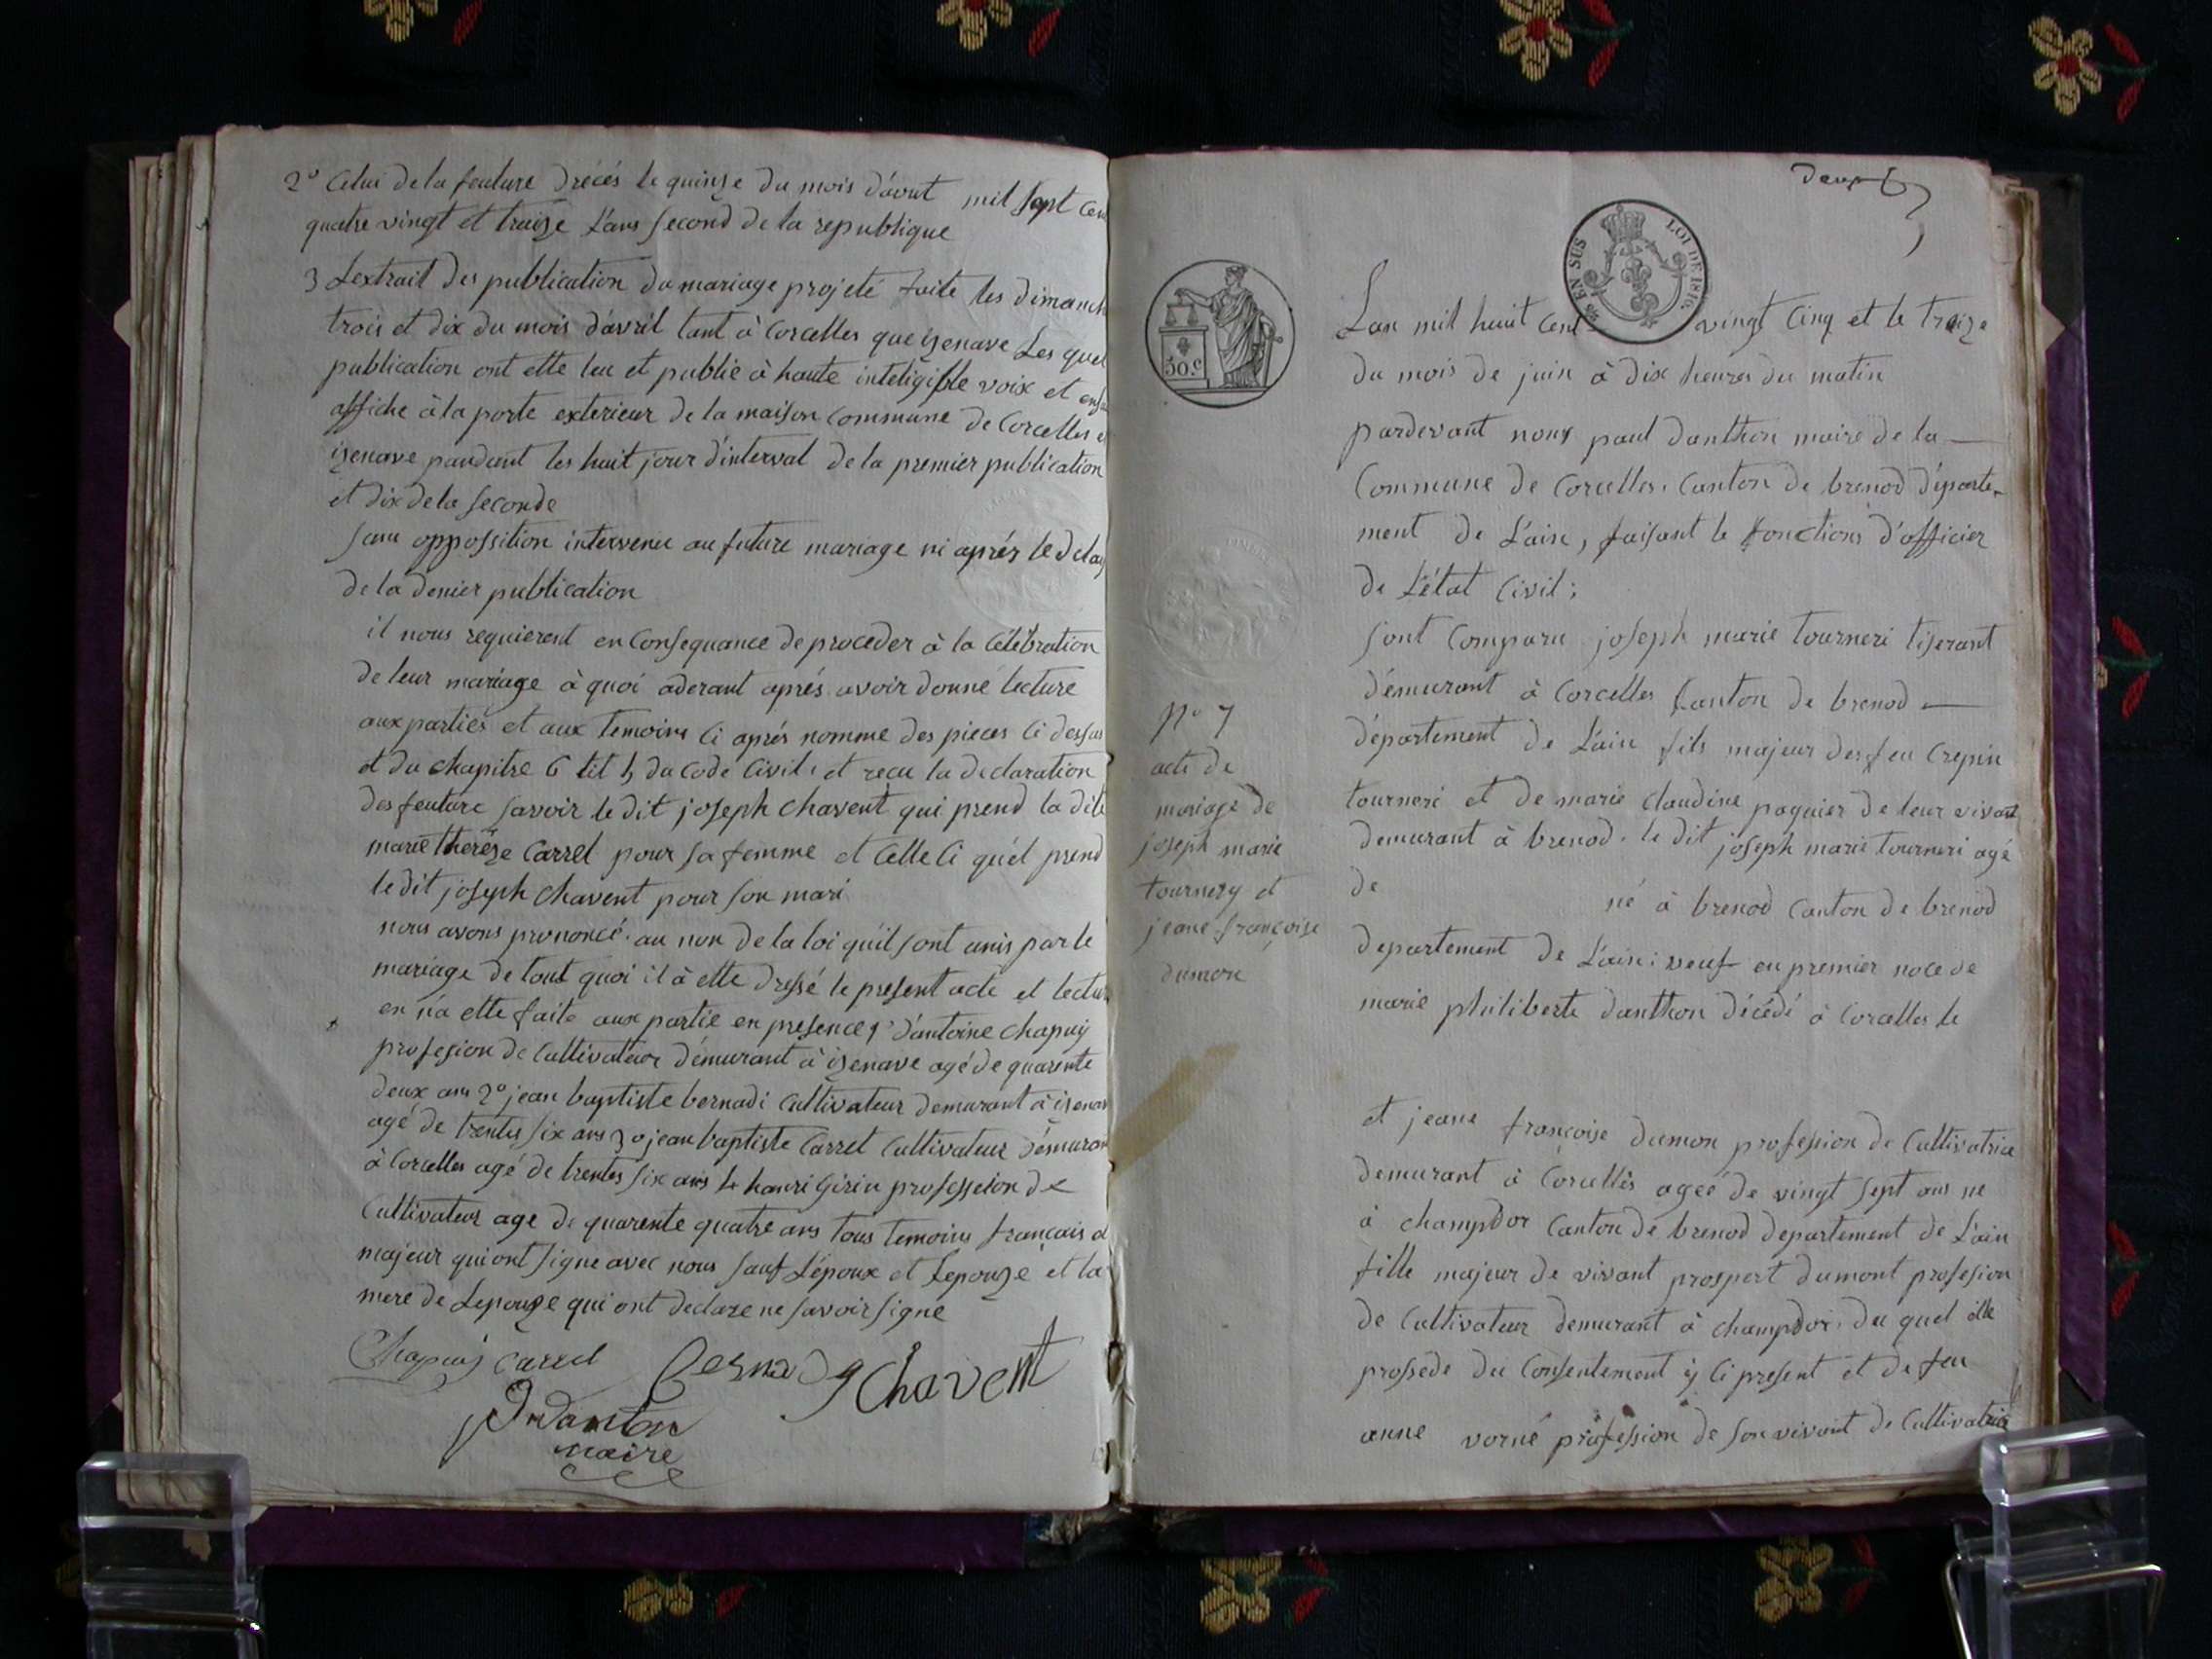 2º Celui de la feuture drécés le quinze du mois d'avut mil sept cen
quatre vingt et traize L'ans second de la republique
3 Lextrait des publication du mariage projeté faite les dimanch
trois et dix du mois d'avril tant à Corcelles que izenave Les quel
publication ont ette leu et publie à haute inteligible voix et
affiche à la porte exterieur de la maison Commune de Corcelles e
izenave pandant les huit jour d'interval de la premier publication
et dix de la seconde
sans oppossition intervenue au future mariage ni aprés le delay
de la denier publication
il nous requierent en Consequance de proceder à la Célébration
de leur mariage à quoi aderant aprés avoir donné lecture
aux partiés et aux temoins Ci aprés nomme des pieces Ci dessus
et du chapitre 6 tit 5 du Code Civil et recu la declaration
des feuture savoir le dit joseph chavent qui prend la dite
marie therèze Carrel pour sa femme et Celle Ci qu'el prend
le dit joseph chavent pour son mari
nous avons prononcé au non de la loi qu'il sont unis par le
mariage de tout quoi il à ette dressé le present acte et lectur
en n'a ette faite aux partie en presence 1º d'antoine chapuy
profesion de Cultivateur démurant à izenave agé de quarente
deux ans 2º jean baptiste bernadi Cultivateur demurant à izenav
agé de trentes six ans 3º jean baptiste Carrel Cultivateur démuran
à Corcelles agé de trentes six ans 4 hanri Girin professeion de
Cultivateur age de quarente quatre ans tous temoins francais et
majeur qui ont signe avec nous sauf L'époux et Lepouze et la
mere de Lepouze qui ont declare ne savoir signe
Chapuis Carrel Bernady Chavent
Danton
maire
Lan mil huit Cent vingt Cinq et le traize
EN SUS LOI DE 1816
50.c
du mois de juin à dix heures du matin
pardevant nous paul danthon maire de la
Commune de Corcelles. Canton de brenod départe-
ment de L'ain, faisant le fonctions d'officier
de L'état Civil;
sont Comparu joseph marie tourneri tiserant
démurant à Corcelles Canton de brenod
département de L'ain fils majeur des feu Crepin
tourneri et de marie Claudine paquier de leur vivant
demurant à brenod. le dit joseph marie tourneri agé
de né à brenod Canton de brenod
departement de L'ain: veuf en premier noce de
marie philiberte danthon décédé à Corcelles le
Nº 7
acte de
mariage de
joseph marie
tournery et
jeane françoise
dumon
et jeane françoise dumon profession de Cultivatrice
demurant à Corcelles agée de vingt sept ans ne
à champdor Canton de brenod departement de L'ain
fille majeur de vivant prospert dumont profesion
de Cultivateur demurant à champdor. du quel elle
prossede du Consentement y Ci present et de feu
anne vorné profession de son vivant de Cultivatrice